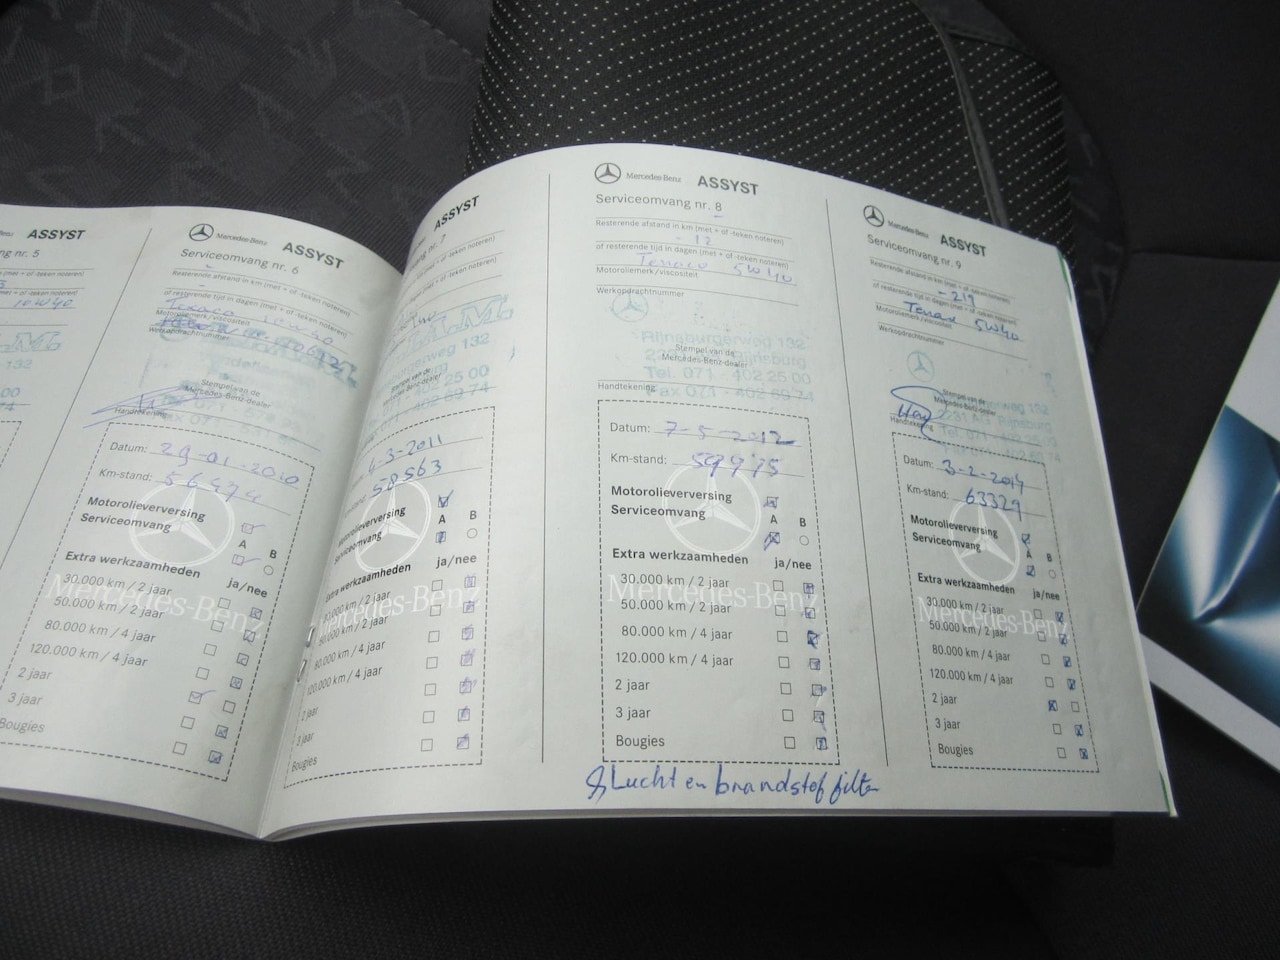 ASSYST
ng nr. 5
10W40
Mercedes-Benz ASSYST
Serviceomvang nr. 6
Resterende afstand in km (met + of -teken noteren)
of resterende tijd in dagen (met + of -teken noteren)
Texaco 10W40
Motoroliemerk/viscositeit
Werkopdrachtnummer
Stempel van de
Mercedes-Benz-dealer
Handtekening
Datum: 29-01-2010
Km-stand: 56474
Motorolieverversing
Serviceomvang A B
Extra werkzaamheden ja/nee
30.000 km / 2 jaar
50.000 km / 2 jaar
80.000 km / 4 jaar
120.000 km / 4 jaar
2 jaar
3 jaar
Bougies
Mercedes-Benz
ASSYST
nr. 7
4-3-2011
58563
Motorolieverversing
Serviceomvang A B
Extra werkzaamheden ja/nee
80.000 km / 4 jaar
120.000 km / 4 jaar
jaar
jaar
Bougies
Mercedes-Benz ASSYST
Serviceomvang nr. 8
Resterende afstand in km (met + of -teken noteren)
- 12
of resterende tijd in dagen (met + of -teken noteren)
Texaco 5W40
Motoroliemerk/viscositeit
Werkopdrachtnummer
Rijnsburgerweg 132
Stempel van de
Mercedes-Benz-dealer
Tel. 071 - 402 25 00
Fax 071 - 402 69 74
Handtekening
Datum: 7-5-2012
Km-stand: 59975
Motorolieverversing
Serviceomvang A B
Extra werkzaamheden ja/nee
30.000 km / 2 jaar
Mercedes-Benz
50.000 km / 2 jaar
80.000 km / 4 jaar
120.000 km / 4 jaar
2 jaar
3 jaar
Bougies
Lucht en brandstof filter
Mercedes-Benz ASSYST
Serviceomvang nr. 9
Resterende afstand in km (met + of -teken noteren)
of resterende tijd in dagen (met + of -teken noteren)
- 217
Texaco 5W40
Motoroliemerk/viscositeit
Werkopdrachtnummer
Stempel van de
Mercedes-Benz-dealer
Handtekening
Datum: 3-2-2014
Km-stand: 63329
Motorolieverversing
Serviceomvang A B
Extra werkzaamheden ja/nee
30.000 km / 2 jaar
Mercedes-Benz
50.000 km / 2 jaar
80.000 km / 4 jaar
120.000 km / 4 jaar
2 jaar
3 jaar
Bougies